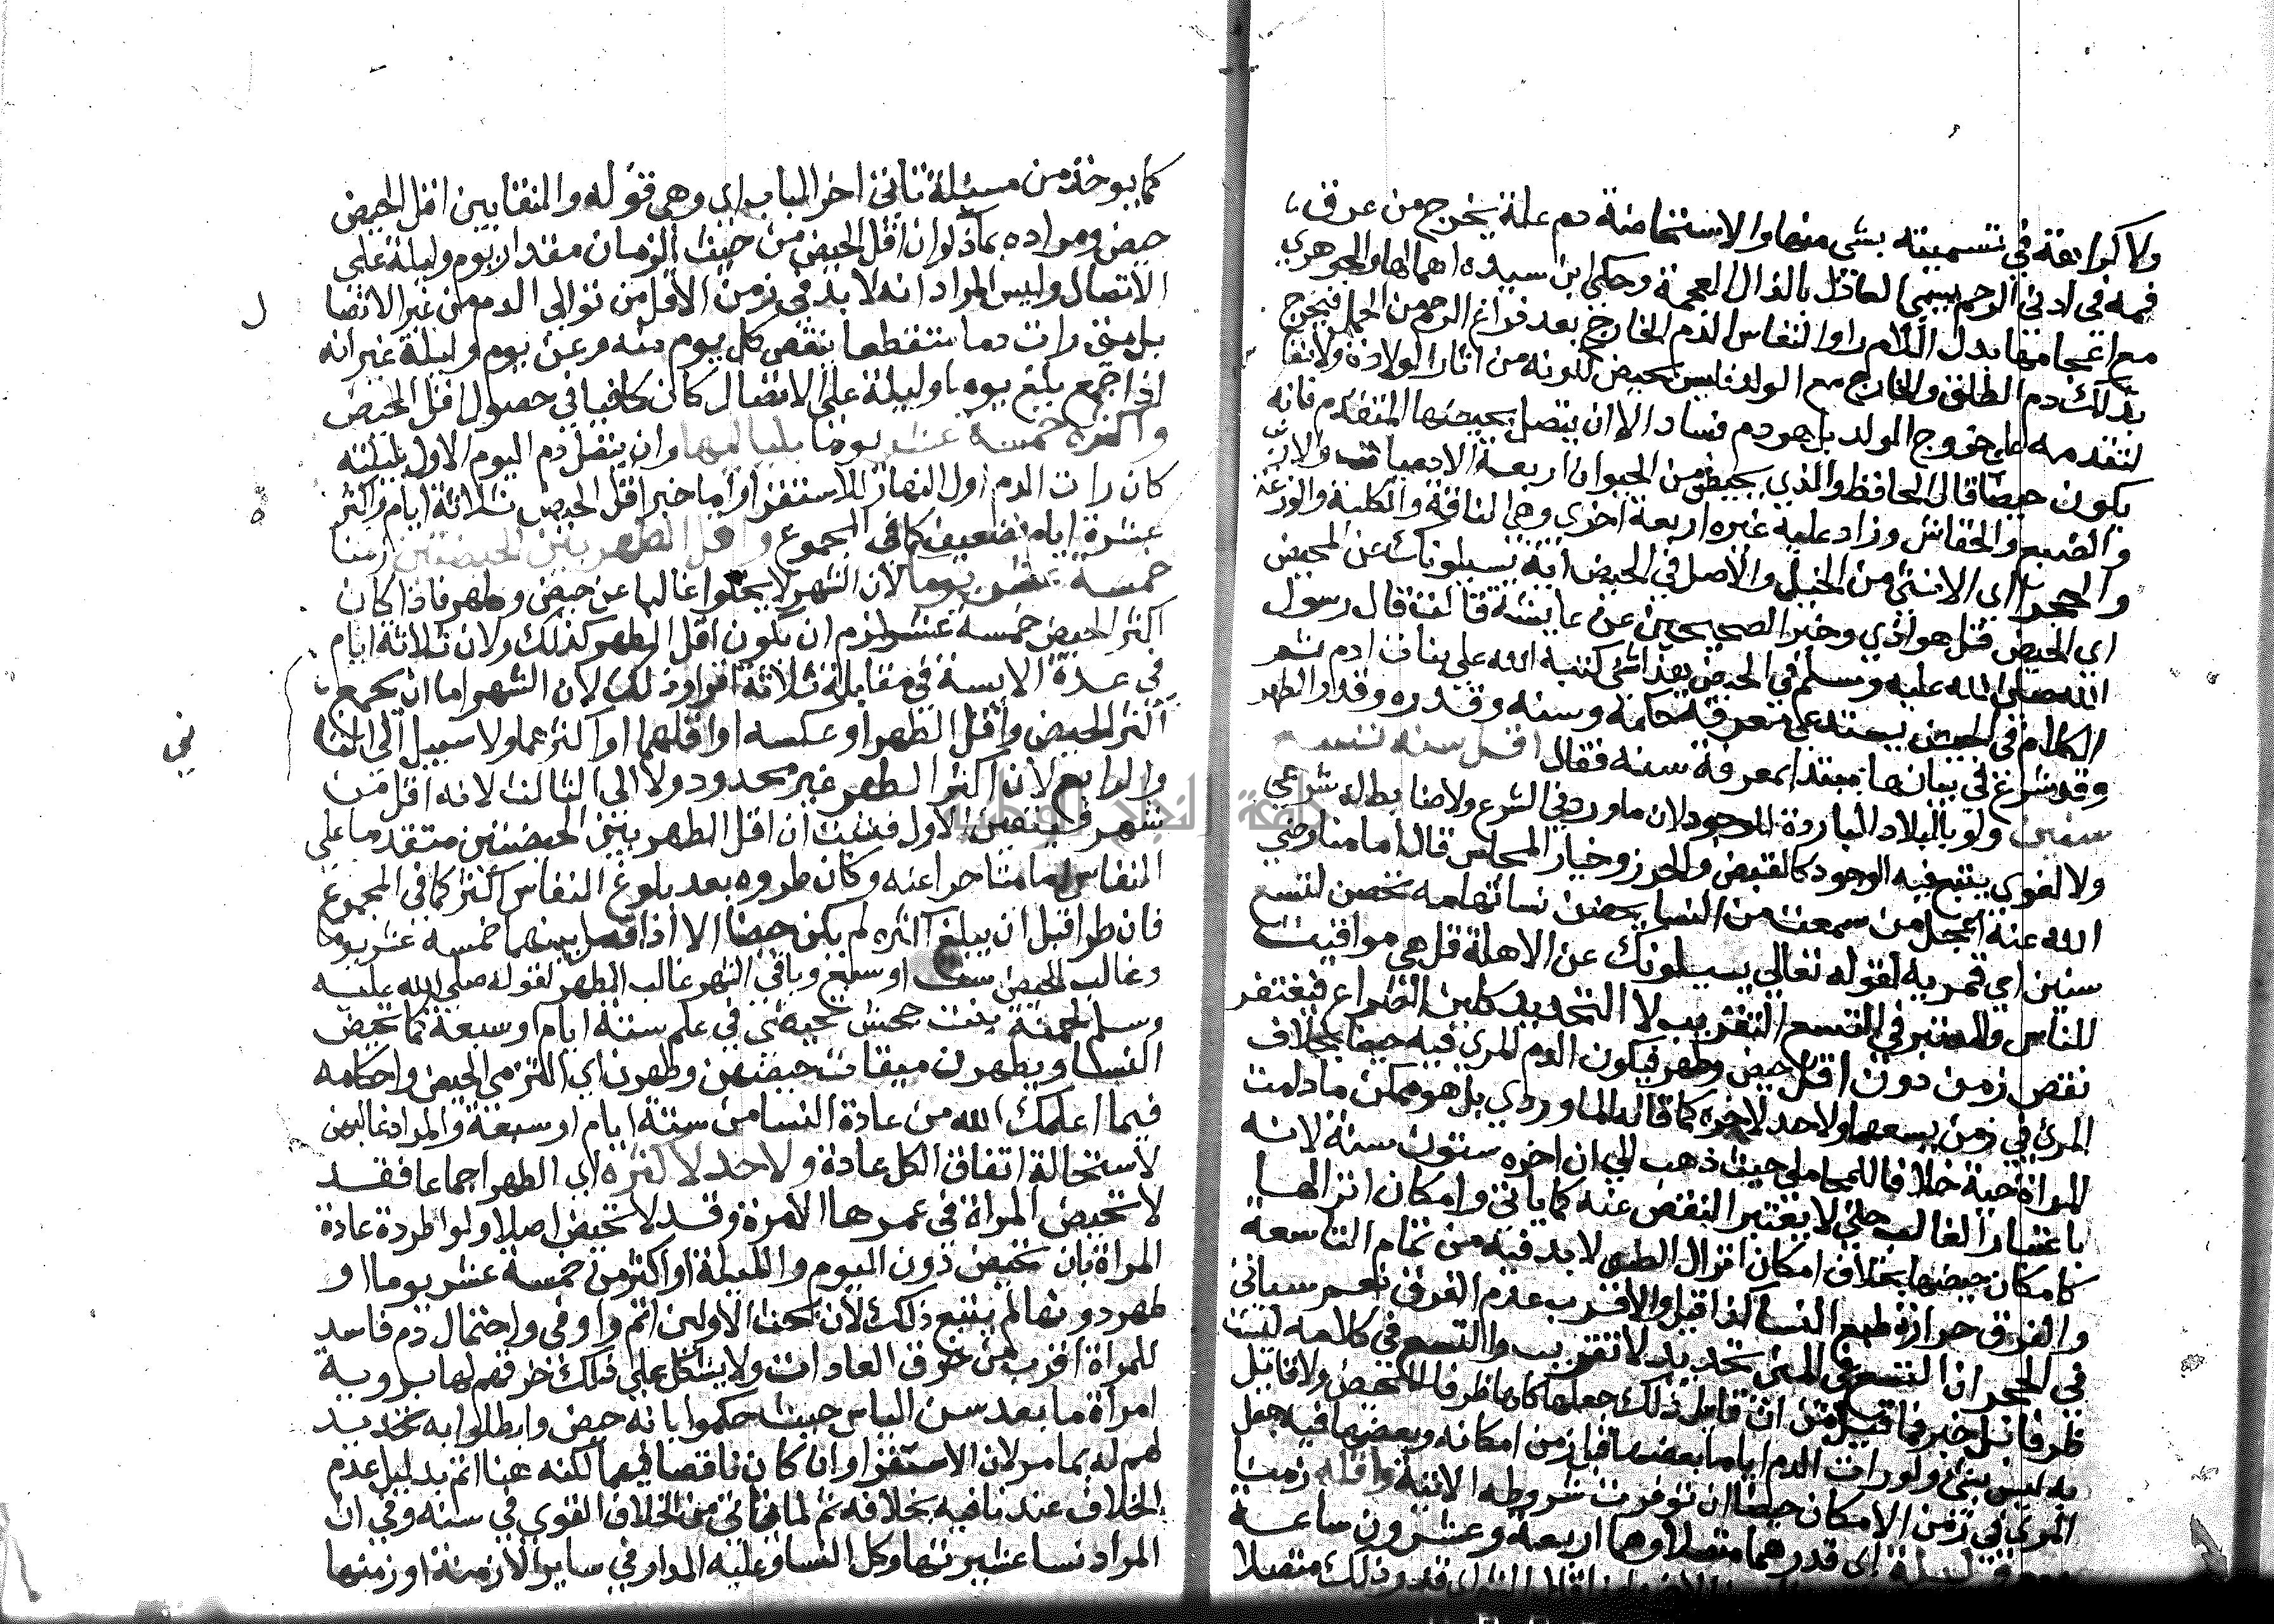 ولا كراهة في تسميته بشي منها والاستحاضة دم علة يخرج من عرق
فمه في ادنى الرحم يسمى العاذل بالذال المعجمة وحكى ابن سيده اهمالها والجوهري
مع اعجامها بدل اللام را والنفاس الدم الخارج بعد فراغ الرحم من الحمل فيخرج
بذلك دم الطلق والخارج مع الولد فليس بحيض لكونه من اثار الولادة ولا نفاس
لتقدمه على خروج الولد بل هو دم فساد الا ان يتصل بحيضها المتقدم فانه
يكون حيضا قال الجاحظ والذي يحيض من الحيوان اربعة الادميات والارنب
والضبع والخفاش وزاد عليه غيره اربعة اخرى وهي الناقة والكلبة والوزغة
والحجر اي الانثى من الخيل والاصل في الحيض اية يسيلونك عن المحيض
اي الحيض قل هو اذي وخبر الصحيحين عن عايشة قالت قال رسول
الله صلى الله عليه وسلم في الحيض هذا شي كتبه الله على بنات ادم ثم
الكلام في الحيض يستدعي معرفة حكمه وسنه وقدره وقدر الطهر
وقد شرع في بيانها مبتدا بمعرفة سنه فقال اقل سنه تسع
سنين ولو بالبلاد الباردة للوجود لان ما ورد في الشرع ولا ضابط له شرعي
ولا لغوي يتبع فيه الوجود كالقبض والحرز وخيار المجلس قال امامنا رضي
الله عنه اعجل من سمعت من النسا يحضن نسا تهامه يحضن لتسع
سنين اي قمرية لقوله تعالى يسيلونك عن الاهلة قل هي مواقيت
للناس والمعتبر في التسع التقريب لا التحديد كلبن الرضاع فيغتفر
نقص زمن دون اقل حيض وطهر فيكون الدم المري فيه حيضا بخلاف
المرئ في زمن يسعهما ولا حد لاخره كما قاله الماوردي بل هو ممكن ما دامت
المراة حية خلافا للمحاملي حيث ذهب الى ان اخره ستون سنة لانه
باعتبار الغالب حتى لا يعتبر النقص عنه كما ياتي وامكان انزالها
كامكان حيضها بخلاف امكان انزال الصبي لا بد فيه من تمام التاسعة
والفرق حرارة طبع النسا كذا قيل والاقرب عدم الفرق نعم سياتي
في الحجر ان التسع في المني تحديد لا تقريب والتسع في كلامه ليست
ظرفا بل خبر فما قيل من ان قايل ذلك جعلها كلها ظرفا للحيض ولا قايل
به ليس بشي ولو رات الدم اياما بعضها قبل زمن امكانه وبعضها فيه جعل
المرئ في زمن الامكان حيضا ان توفرت شروطه الاتية واقله زمنا
يوم وليلة اي قدرهما متصلا وهما اربعة وعشرون ساعة
كما يوخذ من مسئلة تاتي اخر الباب اي وهي قوله والنقا بين اقل الحيض
حيض ومراده بما ذكر ان اقل الحيض من حيث الزمان مقدار يوم وليلة على
الاتصال وليس المراد انه لا بد في زمن الاقل من توالى الدم من غير الاتصا
ل
بل متى رات دما متقطعا ينقص كل يوم منه عن يوم وليلة غير انه
اذا جمع بلغ يوما وليلة على الاتصال كان كافيا في حصول اقل الحيض
واكثره خمسة عشر يوما بلياليها وان يتصل دم اليوم الاول بليلته
كان رات الدم اول النهار للاستقرا واما خبر اقل الحيض ثلاثة ايام واكثره
عشرة ايام فضعيف كما في المجموع واقل الطهر بين الحيضتين زمنا
خمسة عشر يوما لان الشهر لا يخلوا غالبا عن حيض وطهر فاذا كان
اكثر الحيض خمسة عشر لزم ان يكون اقل الطهر كذلك ولان ثلاثة ايام
في عدة الايسة في مقابلة ثلاثة اقرا وذلك لان الشهر اما ان يجمع
اكثر الحيض واقل الطهر او عكسه او اقلهما او اكثرهما ولا سبيل الى الثا
ني
والرابع لان اكثر الطهر غير محدود ولا الى الثالث لانه اقل من
شهر فيتعين الاول فثبت ان اقل الطهر بين الحيضتين متقدما على
النفاس او متاخرا عنه وكان طروه بعد بلوغ النفاس اكثره كما في المجموع
فان طرا قبل ان يبلغ اكثره لم يكن حيضا الا اذا فصل بينهما خمسة عشر يوما
وغالب الحيض ست او سبع وباقي الشهر غالب الطهر لقوله صلى الله عليه
وسلم لحمنة بنت جحش تحيضي في علم ستة ايام او سبعة كما تحيض
النسا ويطهرن ميقات حيضهن وطهرن اي التزمي الحيض واحكامه
فيما اعلمك الله من عادة النسا من ستة ايام او سبعة والمراد غالبهن
لاستحالة اتفاق الكل عادة ولا حد لاكثره اي الطهر اجماعا فقد
لا تحيض المراة في عمرها الا مرة وقد لا تحيض اصلا ولو اطردة عادة
المراة بان تحيض دون اليوم والليلة او اكثر من خمسة عشر يوما او
طهر دونها لم يتبع ذلك لان بحث الاولين اتم واوفى واحتمال دم فاسد
للمراة اقرب من خرق العادات ولا يشكل على ذلك خرقهم لها بروية
امراة ما بعد سن الياس حيث حكموا بانه حيض وابطلوا به تحديد
لهم له بما مر لان الاستقرا وان كان ناقصا فيهما لكنه هنا اتم بدليل عدم
الخلاف عندنا فيه بخلافه ثم لما ياتي من الخلاف القوي في سنه وفي ان
المراد نسا عشيرتها وكل النسا وعليه المدار في ساير الازمنة او زمنها